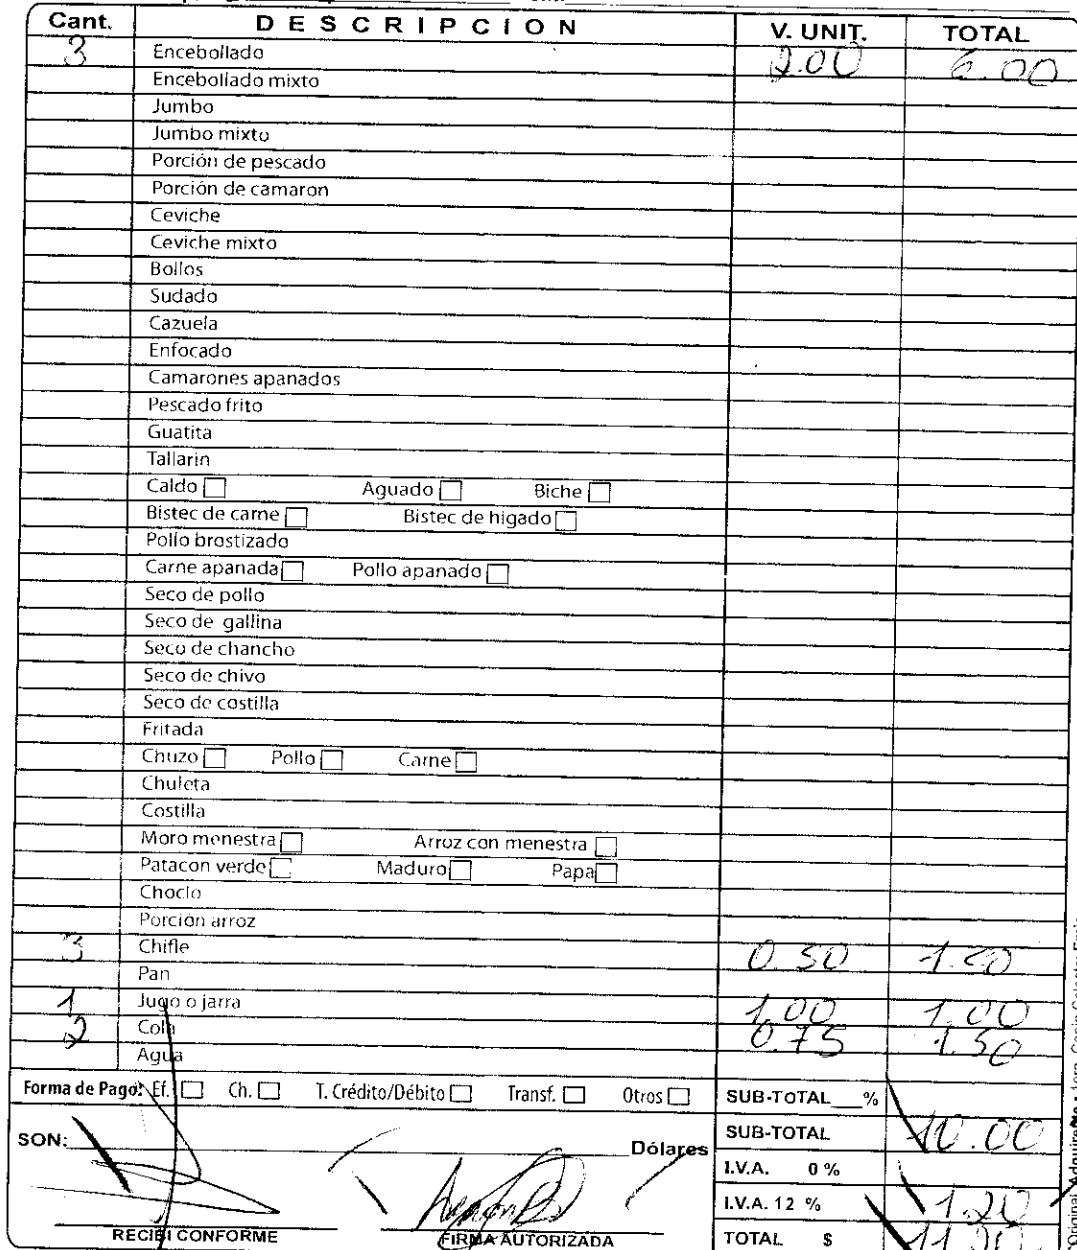 Cant. DESCRIPCION V. UNIT. TOTAL
3 Encebollado 2.00 6.00
Encebollado mixto
Jumbo
Jumbo mixto
Porción de pescado
Porción de camaron
Ceviche
Ceviche mixto
Bollos
Sudado
Cazuela
Enfocado
Camarones apanados
Pescado frito
Guatita
Tallarin
Caldo Aguado Biche
Bistec de carne Bistec de higado
Pollo brostizado
Carne apanada Pollo apanado
Seco de pollo
Seco de gallina
Seco de chancho
Seco de chivo
Seco de costilla
Fritada
Chuzo Pollo Carne
Chuleta
Costilla
Moro menestra Arroz con menestra
Patacon verde Maduro Papa
Choclo
Porción arroz
3 Chifle 0.50
Pan
1 Jugo o jarra 1.00 1.00
2 Cola 0.75 1.50
Agua
Forma de Pago: Ef. Ch. T. Crédito/Débito Transf. Otros SUB-TOTAL___%
SUB-TOTAL 10.00
SON: Dólares
I.V.A. 0 %
I.V.A. 12 % 1.20
RECIBI CONFORME FIRMA AUTORIZADA TOTAL $ 11.20
Original Adquirente